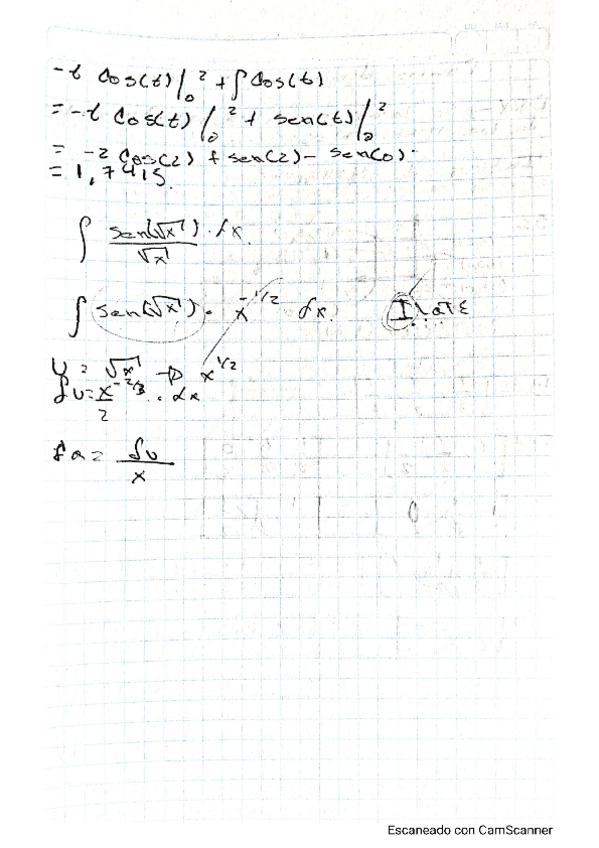 -t Cos(t)|₀² + ∫ Cos(t)
= -t Cos(t)|₀² + sen(t)|₀²
= -2 Cos(2) + sen(2) - sen(0).
= 1,7415.
∫ sen(√x)/√x · dx.
∫ sen(√x) · x^-1/2 dx. ILATE
U = √x → x^1/2
du = x^-2/3/2 . dx
dx = du/x
Escaneado con CamScanner